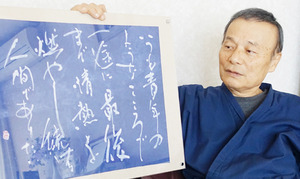 いつも青年の
ようなこころで
一途に最後
まで情熱を
燃やし続ける
人間でありたい